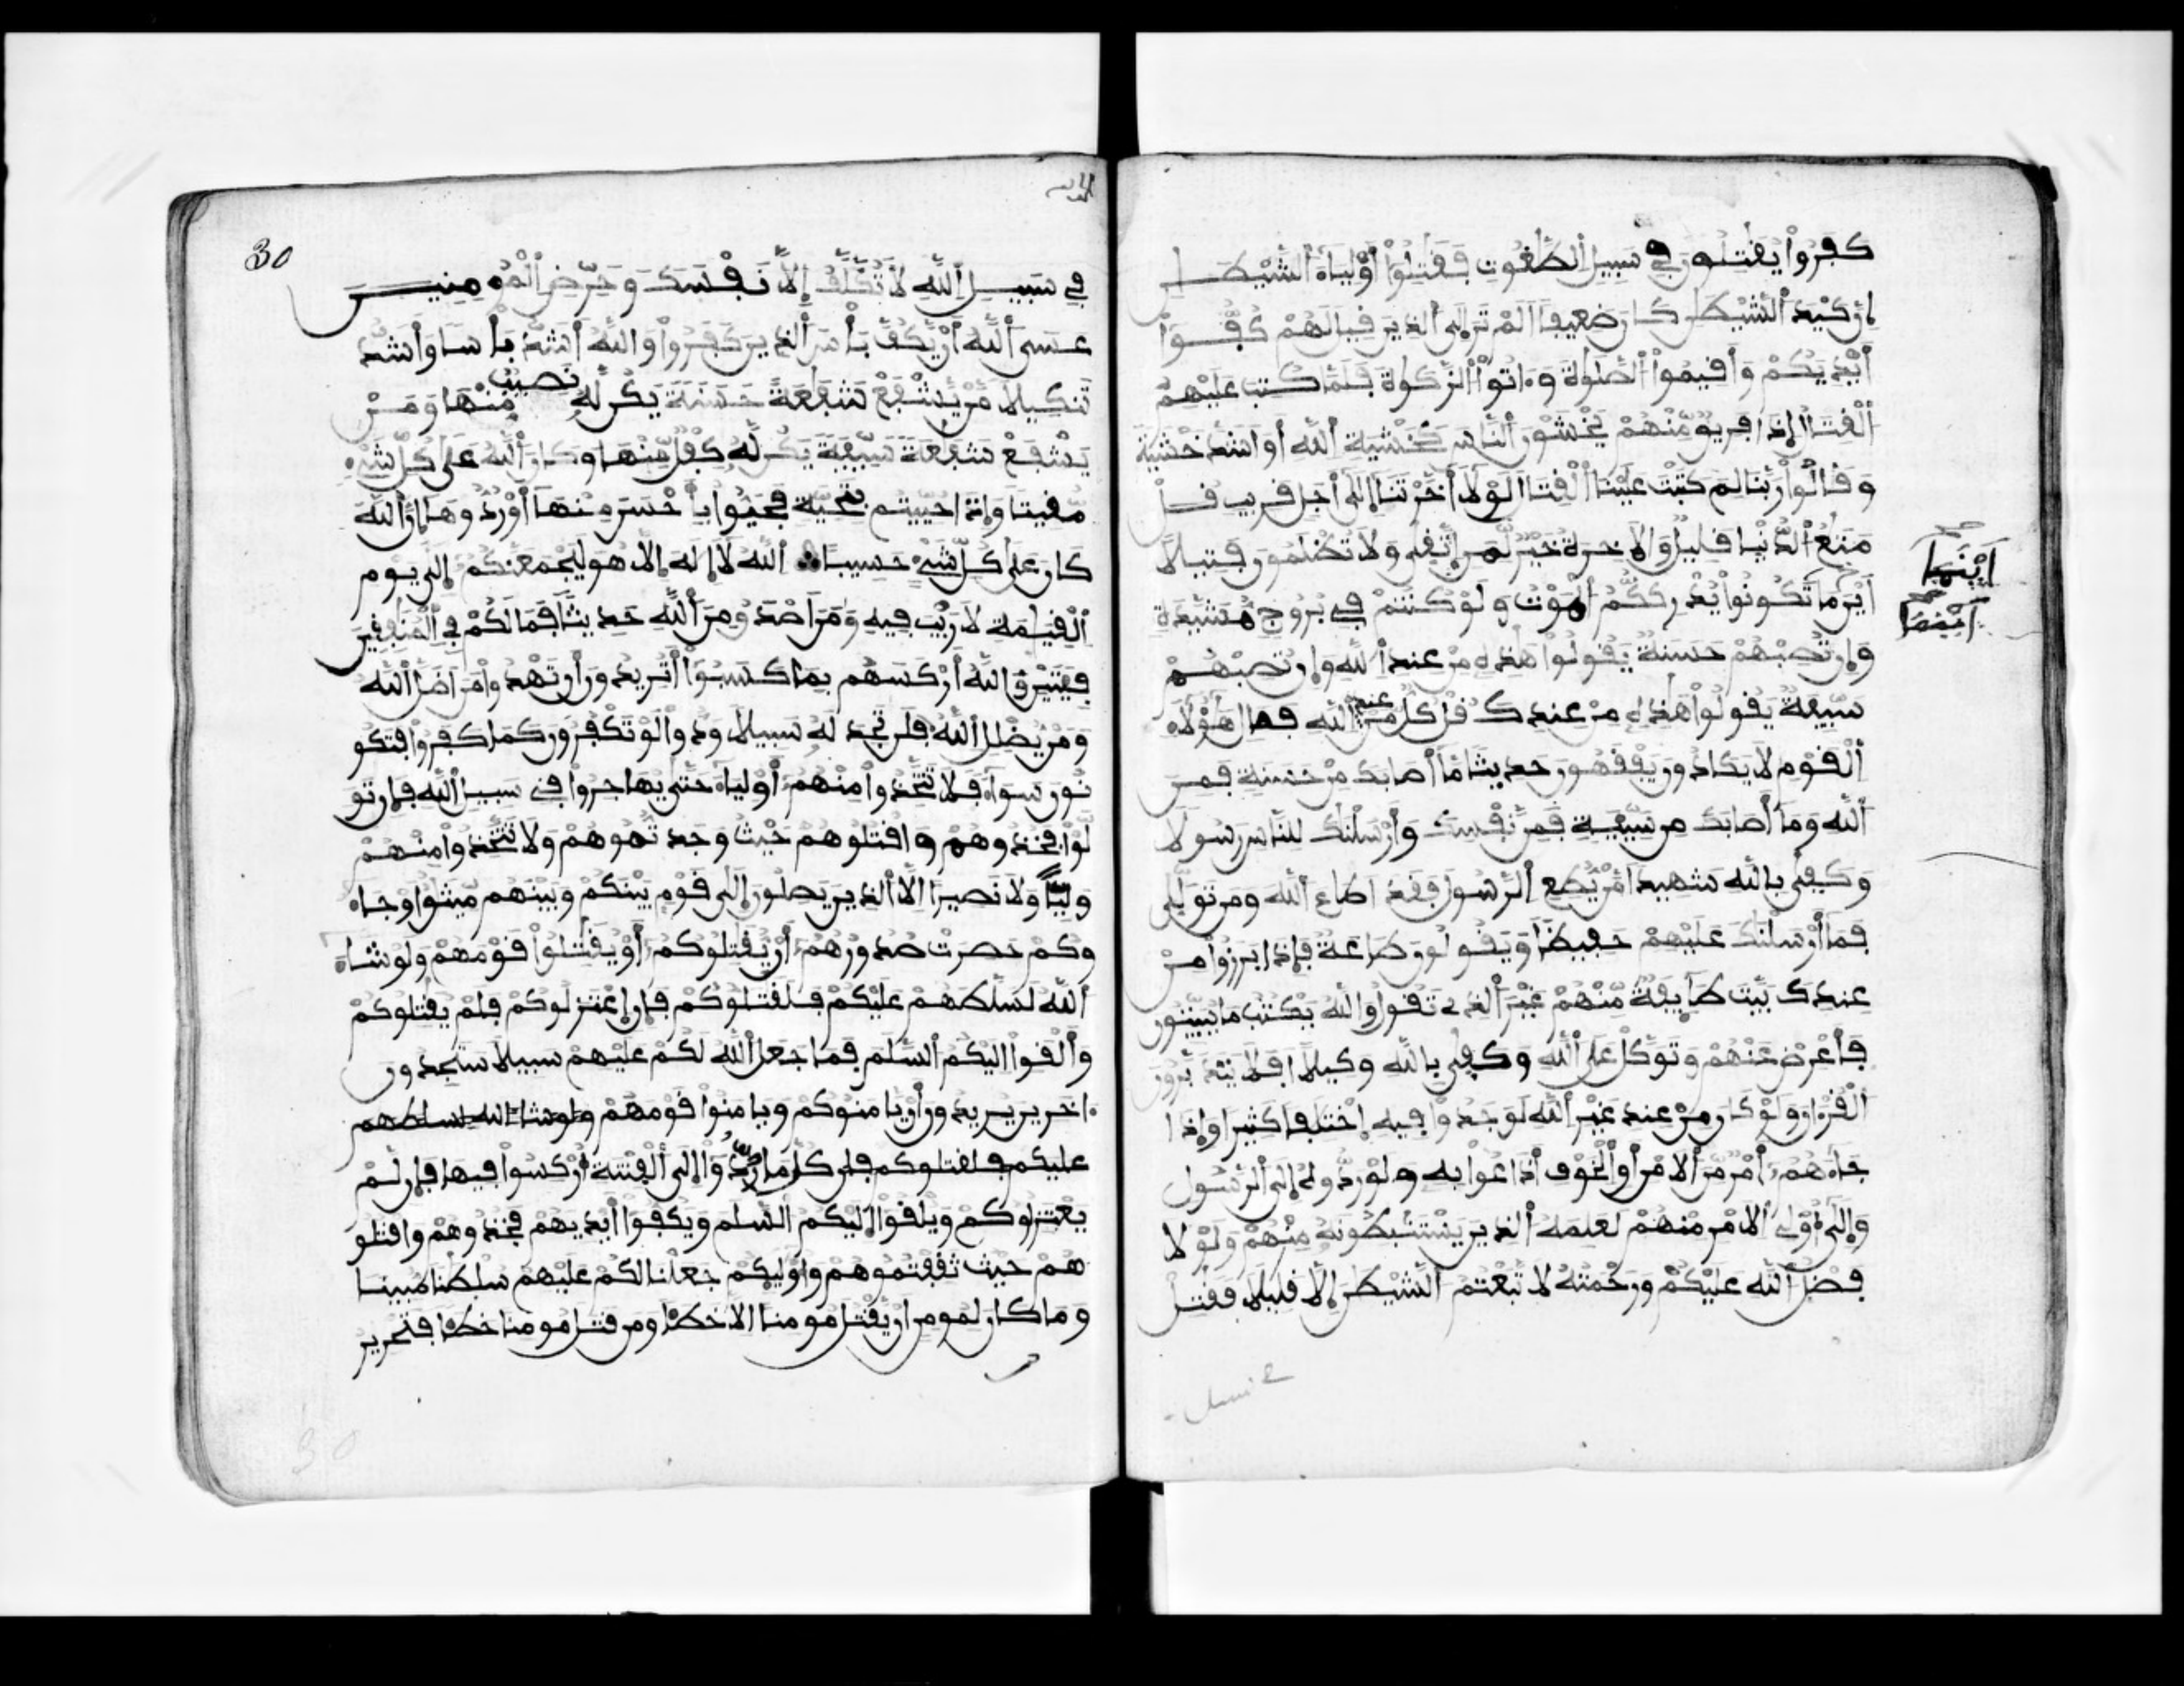 كفروا يقتلون في سبيل الطغوت فقتلوا أولياء الشيطن
إن كيد الشيطن كان ضعيفا الم تر إلى الذين قيل لهم كفوا
أيديكم وأقيموا الصلوة وءاتوا الزكوة فلما كتب عليهم
القتال إذا فريق منهم يخشون الناس كخشية الله أو اشد خشية
وقالوا ربنا لم كتبت علينا القتال لولا أخرتنا إلى أجل قريب قل
متع الدنيا قليل والاخرة خير لمن اتقى ولا تظلمون فتيلا
أين ما تكونوا يدرككم الموت ولو كنتم في بروج مشيدة
وإن تصبهم حسنة يقولوا هذه من عند الله وإن تصبهم
سيئة يقولوا هذه من عندك قل كل من عند الله فمال هؤلاء
القوم لا يكادون يفقهون حديثا ما أصابك من حسنة فمن
الله وما أصابك من سيئة فمن نفسك وأرسلنك للناس رسولا
وكفى بالله شهيدا من يطع الرسول فقد اطاع الله ومن تولى
فما أرسلنك عليهم حفيظا ويقولون طاعة فإذا برزوا من
عندك بيت طايفة منهم غير الذي تقول والله يكتب ما يبيتون
فأعرض عنهم وتوكل على الله وكفى بالله وكيلا افلا يتدبرون
القرءان ولو كان من عند غير الله لوجدوا فيه إختلفا كثيرا وإذا
جاءهم أمر من الامن أو الخوف أذاعوا به ولو ردوه إلى الرسول
وإلى أولي الامر منهم لعلمه الذين يستنبطونه منهم ولولا
فضل الله عليكم ورحمته لا تبعتم الشيطن إلا قليلا فقتل
أينما
أينما
30
في سبيل الله لا تكلف إلا نفسك وحرض المومنين
عسى الله أن يكف بأس الذين كفروا والله أشد بأسا وأشد
تنكيلا من يشفع شفعة حسنة يكن له نصيب منها ومن
يشفع شفعة سيئة يكن له كفل منها وكان الله على كل شيء
مقيتا وإذا حييتم بتحية فحيوا بأحسن منها أو ردوها إن الله
كان على كل شيء حسيبا الله لا إله إلا هو ليجمعنكم إلى يوم
القيمة لا ريب فيه ومن اصدق من الله حديثا فما لكم في المنفقين
فيتين والله أركسهم بما كسبوا أتريدون أن تهدوا من اضل الله
ومن يضلل الله فلن تجد له سبيلا ودوا لو تكفرون كما كفروا فتكو
نون سواء فلا تتخذوا منهم أولياء حتى يهاجروا في سبيل الله فإن تو
لوا فخذوهم واقتلوهم حيث وجدتموهم ولا تتخذوا منهم
وليا ولا نصيرا إلا الذين يصلون إلى قوم بينكم وبينهم ميثق او جاء
وكم حصرت صدورهم أن يقتلوكم أو يقتلوا قومهم ولو شاء
الله لسلطهم عليكم فلقتلوكم فإن إعتزلوكم فلم يقتلوكم
وألقوا اليكم السلم فما جعل الله لكم عليهم سبيلا ستجدون
ءاخرين يريدون أن يامنوكم ويامنوا قومهم ولو شاء الله لسلطهم
عليكم فلقتلوكم فلن كل ما ردوا إلى الفتنة أركسوا فيها فإن لم
يعتزلوكم ويلقوا اليكم السلم ويكفوا أيديهم فخذوهم واقتلو
هم حيث ثقفتموهم وأوليكم جعلنا لكم عليهم سلطنا مبينا
وما كان لمومن ان يقتل مومنا الا خطئا ومن قتل مومنا خطئا فتحرير
30